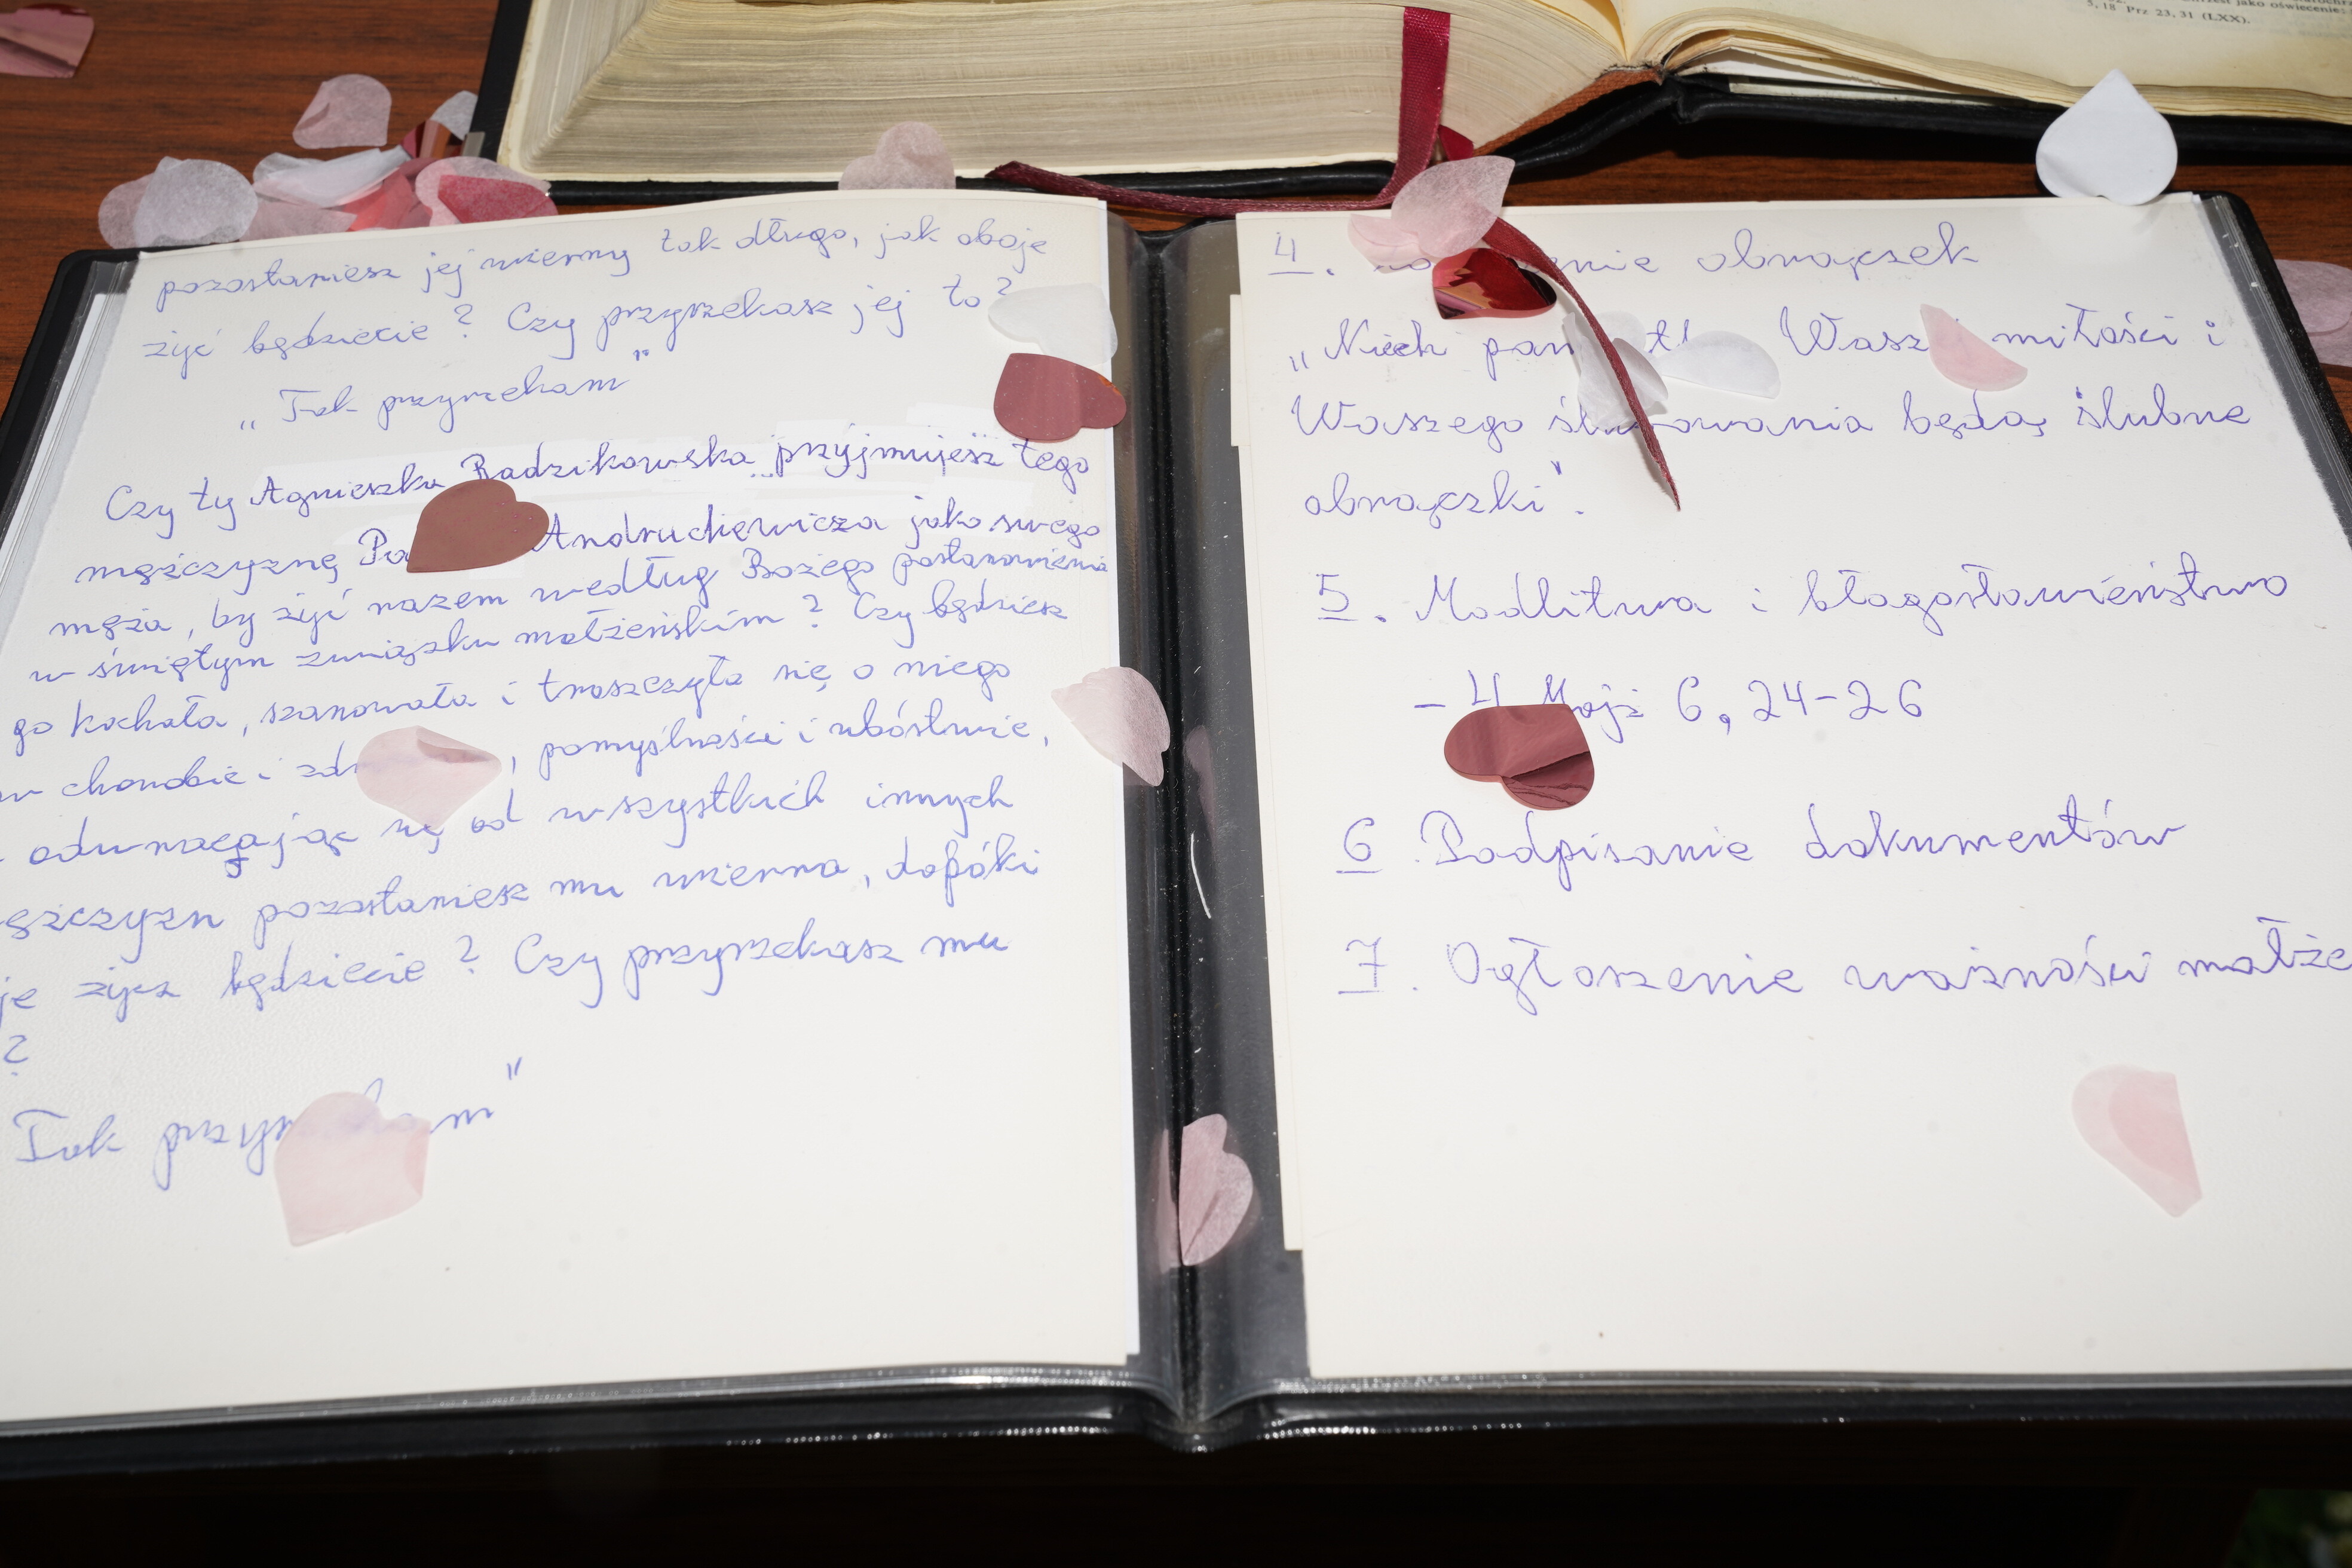 5, 18 Prz 23, 31 (LXX).
pozostaniesz jej wierny tak długo, jak oboje
żyć będziecie? Czy przyrzekasz jej to?
„Tak przyrzekam"
Czy ty Agnieszka Radzikowska przyjmujesz tego
mężczyznę Andruchiewicza jako swego
męża, by żyć razem według Bożego postanowienia
w świętym związku małżeńskim? Czy będziesz
go kochała, szanowała i troszczyła się o niego
w chorobie i , pomyślności i ubóstwie,
odwracając się od wszystkich innych
pozostaniesz mu wierna, dopóki
żyć będziecie? Czy przyrzekasz mu
?
Tak "
4. obrączek
„Niech miłości i
Waszego będą ślubne
obrączki".
5. Modlitwa i błogosławieństwo
- 4 Mojż 6, 24-26
6. Podpisanie dokumentów
7. Ogłoszenie ważności